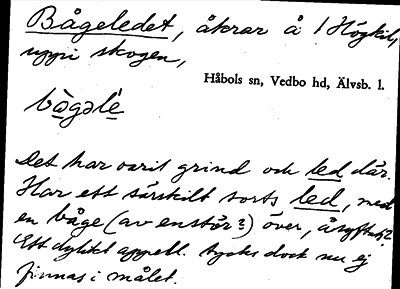 Bågeledet, åkrar å 1 Högkil,
uppi skogen,
Håbols sn, Vedbo hd, Älvsb. l.
bågəlé
Det har varit grind och led där.
Har ett särskilt sorts led, med
en båge (av enstör?) över, åsyftats?
Ett dylikt appell. tycks dock nu ej
finnas i målet.